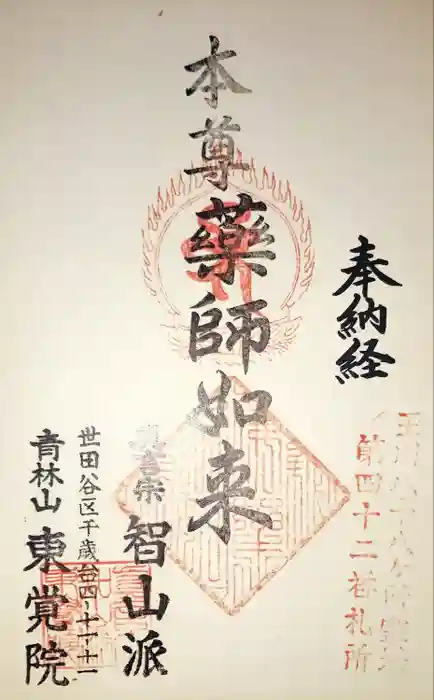 奉納経
第四十二番札所
本尊
薬師如来
真言宗 智山派
世田谷区千歳台四-十一-十一
青林山 東覚院